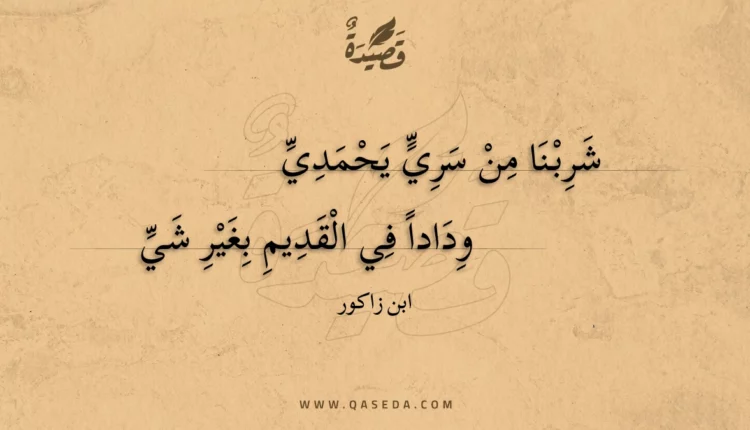 قَصِيْدَةٌ
شَرِبْنَا مِنْ سَرِيٍّ يَحْمَدِيِّ
وِدَاداً فِي الْقَدِيمِ بِغَيْرِ شَيِّ
ابن زاكور
WWW.QASEDA.COM